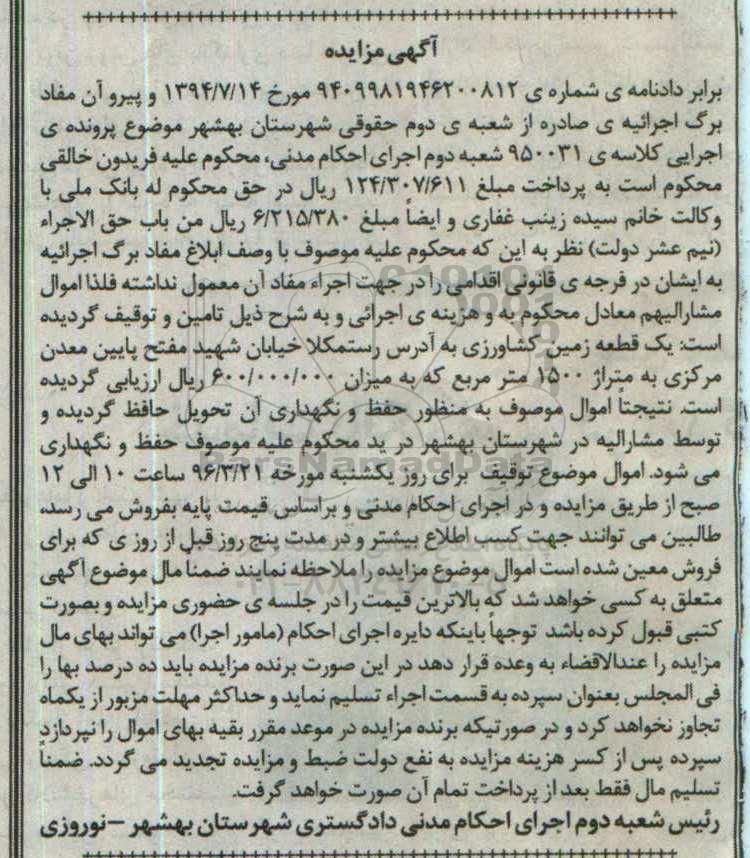 آگهی مزایده
برابر دادنامه ی شماره ی ۹۴۰۹۹۸۱۹۴۶۲۰۰۸۱۲ مورخ ۱۳۹۴/۷/۱۴ و پیرو آن مفاد
برگ اجرائیه ی صادره از شعبه ی دوم حقوقی شهرستان بهشهر موضوع پرونده ی
اجرایی کلاسه ی ۹۵۰۰۳۱ شعبه دوم اجرای احکام مدنی، محکوم علیه فریدون خالقی
محکوم است به پرداخت مبلغ ۱۲۴/۳۰۷/۶۱۱ ریال در حق محکوم له بانک ملی با
وکالت خانم سیده زینب غفاری و ایضاً مبلغ ۶/۲۱۵/۳۸۰ ریال من باب حق الاجراء
(نیم عشر دولت) نظر به این که محکوم علیه موصوف با وصف ابلاغ مفاد برگ اجرائیه
به ایشان در فرجه ی قانونی اقدامی را در جهت اجراء مفاد آن معمول نداشته فلذا اموال
مشارالیهم معادل محکوم به و هزینه ی اجرائی و به شرح ذیل تامین و توقیف گردیده
است: یک قطعه زمین کشاورزی به آدرس رستمکلا خیابان شهید مفتح پایین معدن
مرکزی به متراژ ۱۵۰۰ متر مربع که به میزان ۶۰۰/۰۰۰/۰۰۰ ریال ارزیابی گردیده
است. نتیجتاً اموال موصوف به منظور حفظ و نگهداری آن تحویل حافظ گردیده و
توسط مشارالیه در شهرستان بهشهر در ید محکوم علیه موصوف حفظ و نگهداری
می شود. اموال موضوع توقیف برای روز یکشنبه مورخه ۹۶/۳/۲۱ ساعت ۱۰ الی ۱۲
صبح از طریق مزایده و در اجرای احکام مدنی و براساس قیمت پایه بفروش می رسد،
طالبین می توانند جهت کسب اطلاع بیشتر و در مدت پنج روز قبل از روز ی که برای
فروش معین شده است اموال موضوع مزایده را ملاحظه نمایند ضمناً مال موضوع آگهی
متعلق به کسی خواهد شد که بالاترین قیمت را در جلسه ی حضوری مزایده و بصورت
کتبی قبول کرده باشد توجهاً باینکه دایره اجرای احکام (مامور اجرا) می تواند بهای مال
مزایده را عندالاقضاء به وعده قرار دهد در این صورت برنده مزایده باید ده درصد بها را
فی المجلس بعنوان سپرده به قسمت اجراء تسلیم نماید و حداکثر مهلت مزبور از یکماه
تجاوز نخواهد کرد و در صورتیکه برنده مزایده در موعد مقرر بقیه بهای اموال را نپردازد
سپرده پس از کسر هزینه مزایده به نفع دولت ضبط و مزایده تجدید می گردد. ضمناً
تسلیم مال فقط بعد از پرداخت تمام آن صورت خواهد گرفت.
رئیس شعبه دوم اجرای احکام مدنی دادگستری شهرستان بهشهر – نوروزی
ParsNamadData